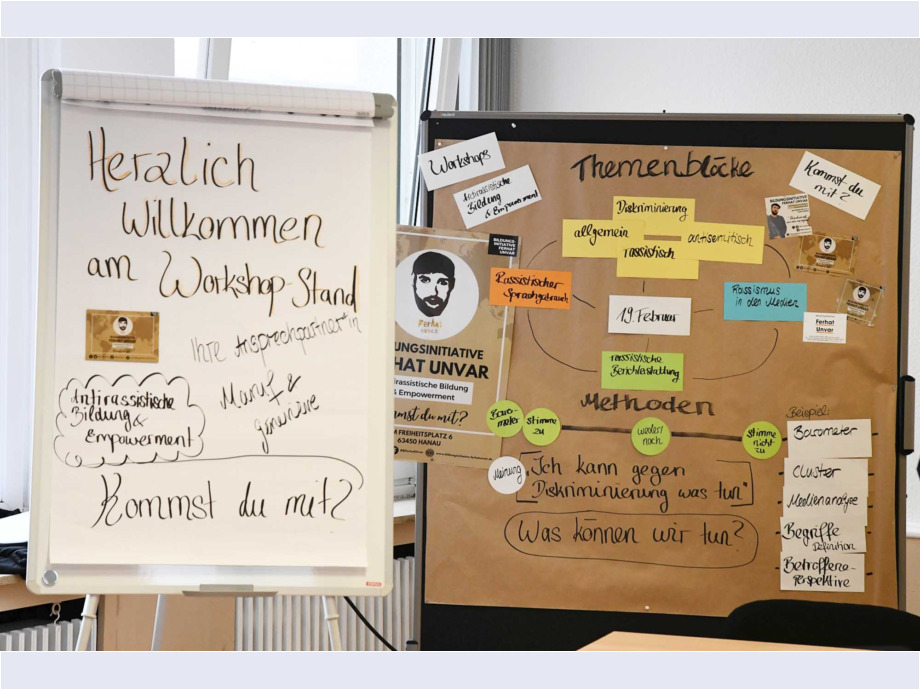 Herzlich
Willkommen
am Workshop-Stand
Ihre Ansprechpartner*in
Maruf &
Antirassistische
Bildung &
Empowerment
Kommst du mit?
Workshops
Antirassistische
Bildung
& Empowerment
Themenblöcke
Kommst du
mit?
Diskriminierung
allgemein
rassistisch
antisemitisch
Rassistischer
Sprachgebrauch
19. Februar
Rassismus
in den Medien
rassistische
Berichterstattung
BILDUNGS-
INITIATIVE
FERHAT
UNVAR
Ferhat
UNGSINITIATIVE
HAT UNVAR
irassistische Bildung
& Empowerment
mmst du mit?
M FREIHEITSPLATZ 6
63450 HANAU
BILDUNGSINITIATIVE
FERHAT UNVAR
Ferhat
Unvar
Methoden
Baro-
meter
Stimme
zu
weder/
noch
stimme
nicht
zu
Meinung
"Ich kann gegen
Diskriminierung was tun"
Was können wir tun?
Beispiel:
Barometer
Cluster
Medienanalyse
Begriffe
Definition
Betroffene-
perspektive